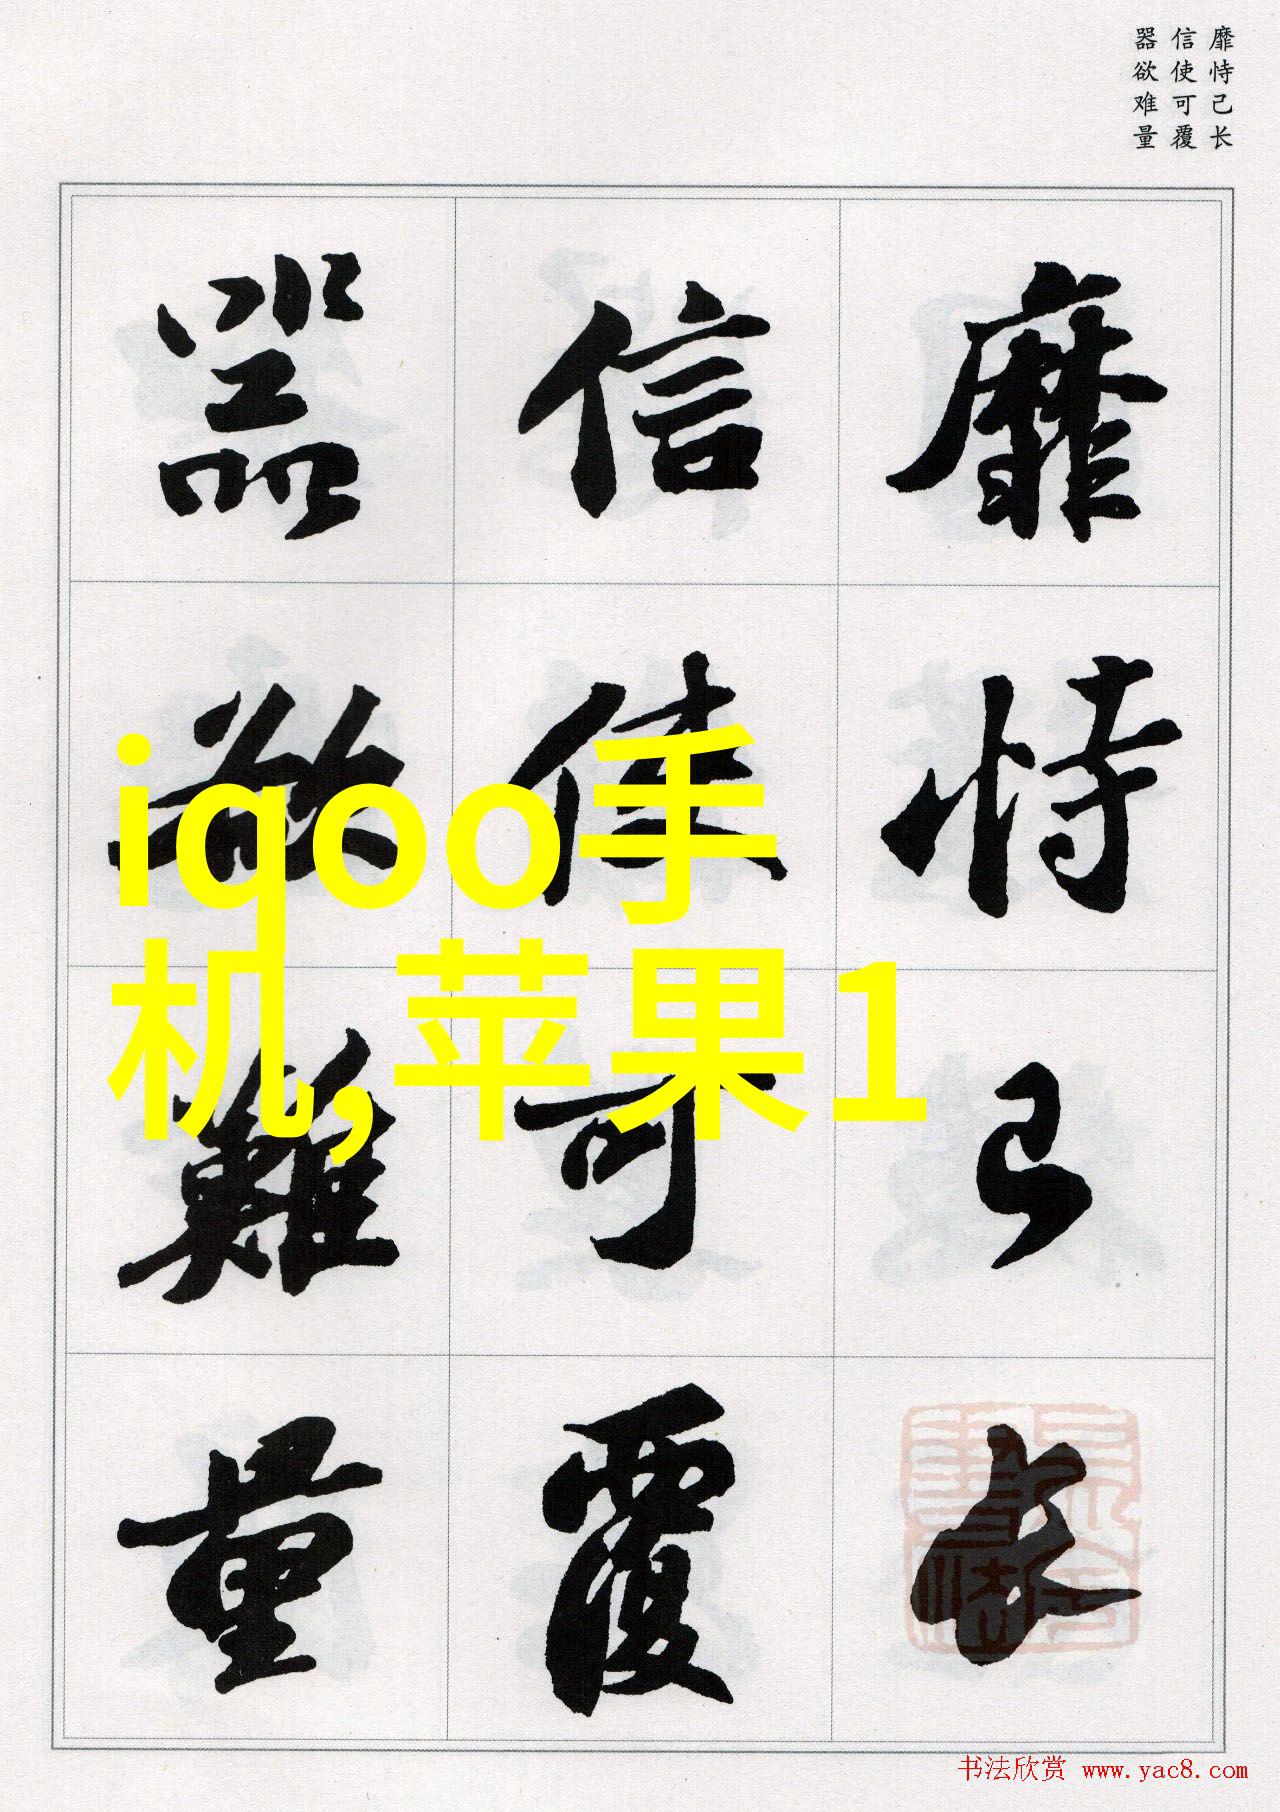 靡恃己长
信使可覆
器欲难量
靡恃己长
信使可覆
器欲難量
iqoo手
机,苹果1
书法欣赏 www.yac8.com